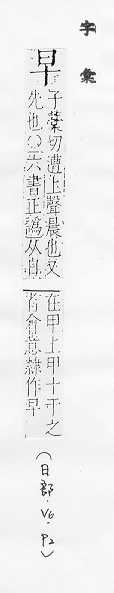 字彙
早
子藁切遭上聲晨也又
先也○六書正譌从日
在甲上甲十干之
首會意隸作早
(日部.V6.P2)